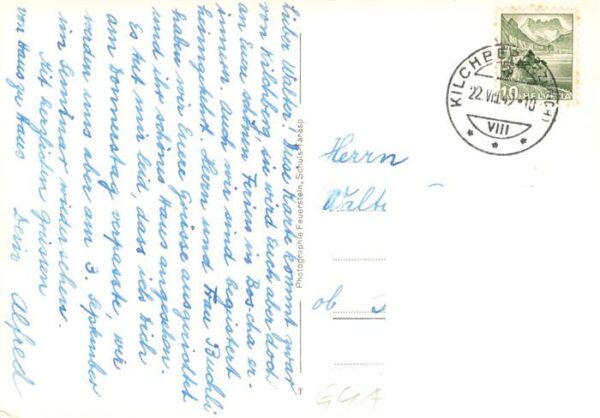 Lieber Walter, diese Karte kommt zwar
von Kilchberg, sie wird Euch aber doch
an Eure schönen Ferien in Bos-cha er-
innern. Auch wir sind begeistert
heimgekehrt. Herrn und Frau Buchli
haben wir Eure Grüsse ausgerichtet
und ihr schönes Haus angesehen.
Es tut mir leid, dass ich Dich
am Donnerstag verpasste, wir
werden uns aber am 3. September
im Seminar wiedersehen.
Mit herzlichen Grüssen
von Haus zu Haus
Dein Alfred
Photographie Feuerstein, Schuls-Tarasp
HELVETIA
10
KILCHBERG
22.VIII.49-10
VIII
Herrn
Walt
ob